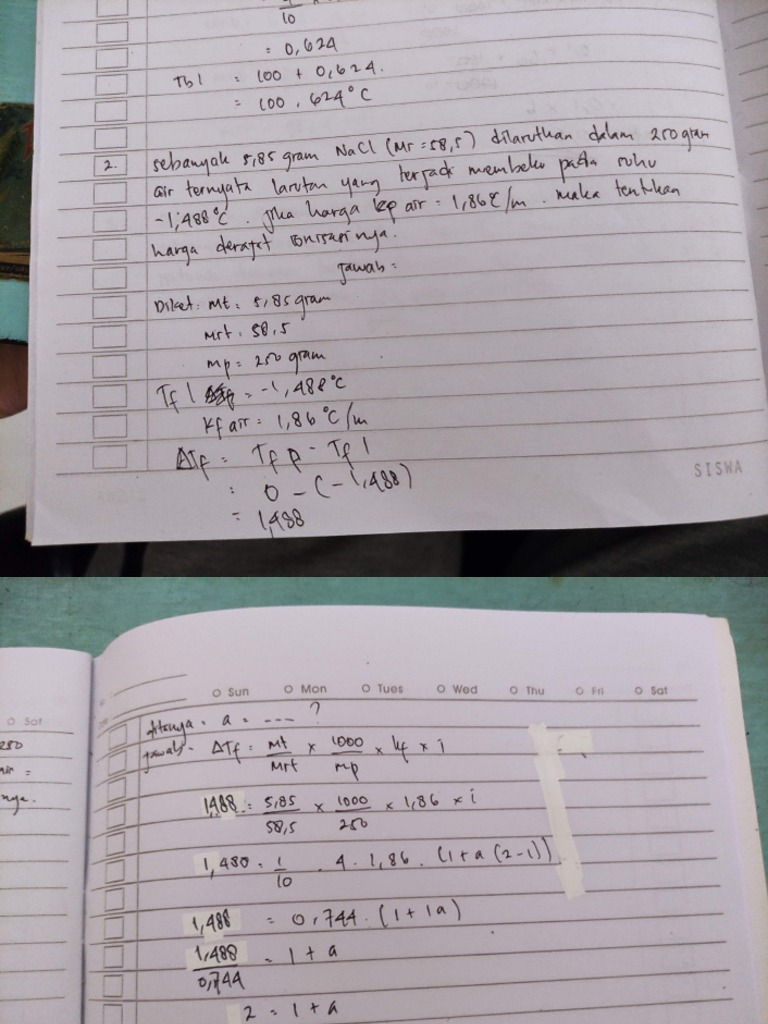 10
= 0,624
Tb l = 100 + 0,624.
= 100,624°C
2. sebanyak 5,85 gram NaCl (Mr = 58,5) dilarutkan dalam 250 gram
air ternyata larutan yang terjadi membeku pada suhu
-1,488°C. jika harga kp air = 1,86°C/m. maka tentukan
harga derajat ionisasinya.
jawab =
Diket: Mt = 5,85 gram
Mrt = 58,5
mp = 250 gram
Tf l = -1,488°C
Kf air = 1,86°C/m
ΔTf = Tf p - Tf l
= 0 - (-1,488)
= 1,488
SISWA
Sun Mon Tues Wed Thu Fri Sat
Sat
250
air =
nya.
ditanya = a = ---- ?
jawab = ΔTf = mt/Mrt × 1000/mp × kf × i
1,488 = 5,85/58,5 × 1000/250 × 1,86 × i
1,480 = 1/10 . 4 . 1,86 . (1 + a (2-1))
1,488 = 0,744 . (1 + 1a)
1,488/0,744 = 1 + a
2 = 1 + a